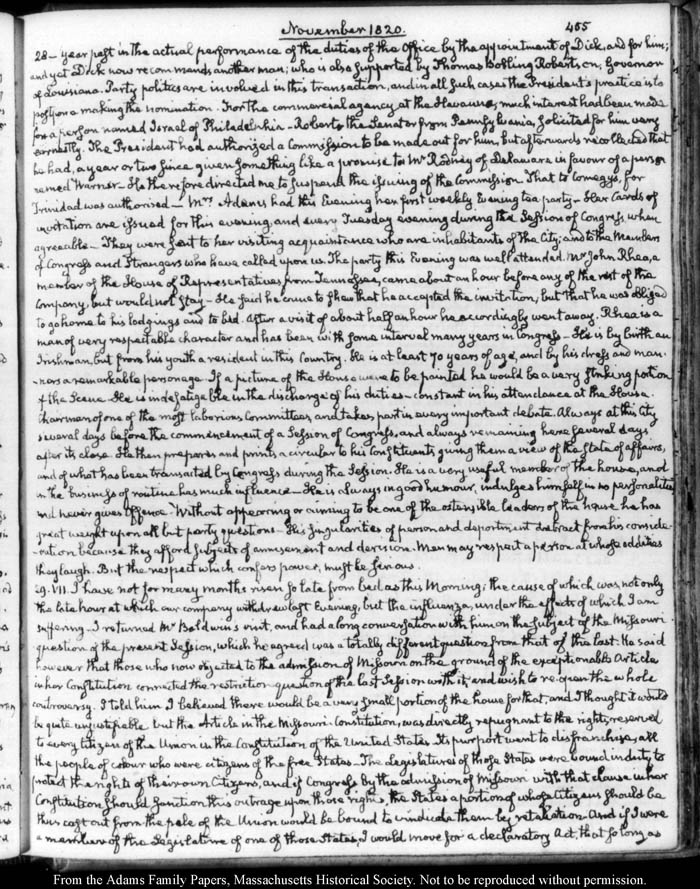 November 1820.
455
28 — year past in the actual performance of the duties of the Office by the appointment of Dick, and for him;
and yet Dick now recommends another man; who is also supported by Thomas Bolling Robertson, Governor
of Louisiana. Party politics are involved in this transaction, and in all such cases the President's practice is to
postpone making the nomination. For the commercial agency at the Havanna, much interest had been made
for a person named Israel of Philadelphia — Roberts the Senator from Pennsylvania, solicited for him very
earnestly. The President had authorized a Commission to be made out for him, but afterwards recollected that
he had, a year or two since given something like a promise to Mr Rodney of Delaware in favour of a person
named Warner — He therefore directed me to suspend the issuing of the Commission. That to Comegys, for
Trinidad was authorised — Mrs Adams had this Evening her first weekly Evening tea party — Her Cards of
invitation are issued for this evening, and every Tuesday evening during the Session of Congress, when
agreeable — They were sent to her visiting acquaintance who are inhabitants of the City; and to the Members
of Congress and Strangers who have called upon us. The party this Evening was well attended. Mr John Rhea, a
member of the House of Representatives, from Tennessee, came about an hour before any of the rest of the
Company, but would not stay — He said he came to shew that he accepted the invitation, but that he was obliged
to go home to his lodgings and to bed. After a visit of about half an hour he accordingly went away. Rhea is a
man of very respectable character and has been with some interval many years in Congress — He is by birth an
Irishman, but from his youth a resident in this Country. He is at least 70 years of age, and by his dress and man-
-ners a remarkable personage. If a picture of the House were to be painted he would be a very striking portion
of the Scene. He is indefatigable in the discharge of his duties — constant in his attendance at the House.
Chairman of one of the most laborious Committees, and takes part in every important debate. Always at this City
several days before the commencement of a Session of Congress, and always remaining here several days
after its close. He then prepares and prints a circular to his Constituents giving them a view of the State of affairs,
and of what has been transacted by Congress during the Session. He is a very useful member of the house, and
in the business of routine has much influence — He is always in good humour, indulges himself in no personalities
and never gives offence. Without appearing or aiming to be one of the ostensible leaders of the house he has
great weight upon all but party questions — His singularities of person and deportment detract from his conside-
-ration because they afford subjects of amusement and derision. Man may respect a person at whose oddities
they laugh. But the respect which confers power, must be serious.
29. VII. I have not for many months risen so late from bed as this Morning; the cause of which was not only
the late hour at which our company withdrew last Evening, but the influenza, under the effects of which I am
suffering. I returned Mr Baldwin's visit, and had a long conversation with him on the subject of the Missouri
question of the present Session, which he agreed was a totally different question from that of the last. He said
however that those who now objected to the admission of Missouri on the ground of the exceptionable Article
in her Constitution connected the restriction question of the last Session with it, and wish to re-open the whole
controversy. I told him I believed there would be a very small portion of the house for that, and I thought it would
be quite unjustifiable. but the Article in the Missouri Constitution, was directly repugnant to the rights, reserved
to every Citizen of the Union in the Constitution of the United States. Its purport went to disfranchise, all
the people of colour who were citizens of the free States — The Legislatures of those States were bound in duty to
protect the rights of their own Citizens, and if Congress by the admission of Missouri with that clause in her
Constitution should sanction this outrage upon those rights, the States a portion of whose Citizens should be
thus cast out from the pale of the Union would be bound to vindicate them by retaliation. And if I were
a member of the Legislature of one of those States, I would move for a declaratory Act, that so long as
From the Adams Family Papers, Massachusetts Historical Society. Not to be reproduced without permission.